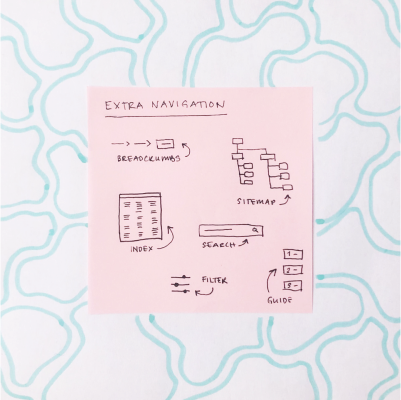 EXTRA NAVIGATION
BREADCRUMBS
SITEMAP
INDEX
SEARCH
FILTER
1 -
2 -
3 -
GUIDE